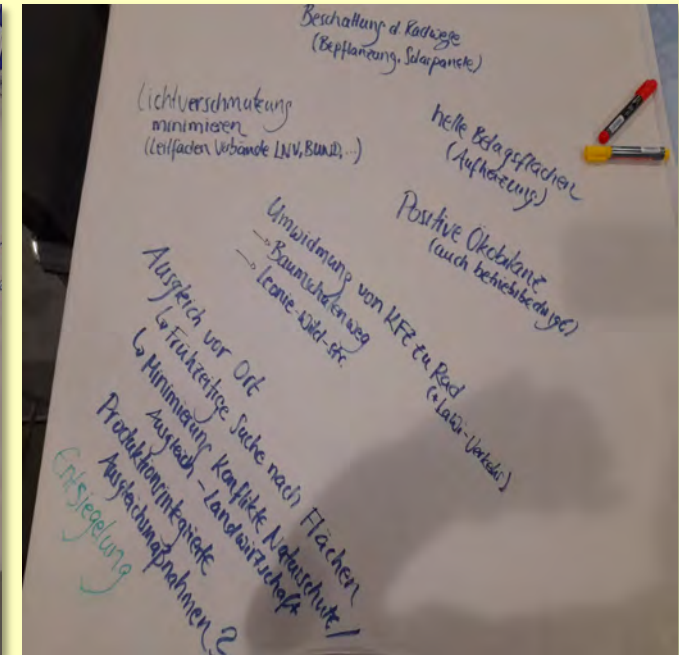 Beschattung d. Radwege
(Bepflanzung, Solarpanele)
Lichtverschmutzung
minimieren
(Leitfaden Verbände LNV, BUND, ...)
helle Belagsflächen
(Aufheizung)
Positive Ökobilanz
(auch betriebsbedingt)
Umwidmung von KFZ zu Rad
(+ LaWi-Verkehr)
→ Baumschulenweg
→ Leonie-Wild-Str.
Ausgleich vor Ort
↳ Frühzeitige Suche nach Flächen
↳ Minimierung Konflikte Naturschutz /
Ausgleich - Landwirtschaft
Produktionsintegrierte
Ausgleichsmaßnahmen ?
Entsiegelung